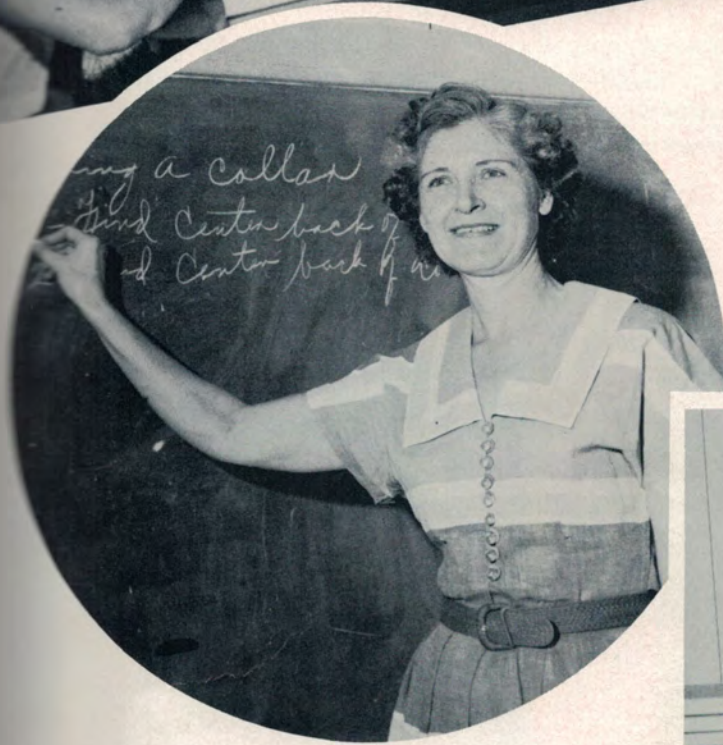 ing a collar
Find Center back of
d Center back of